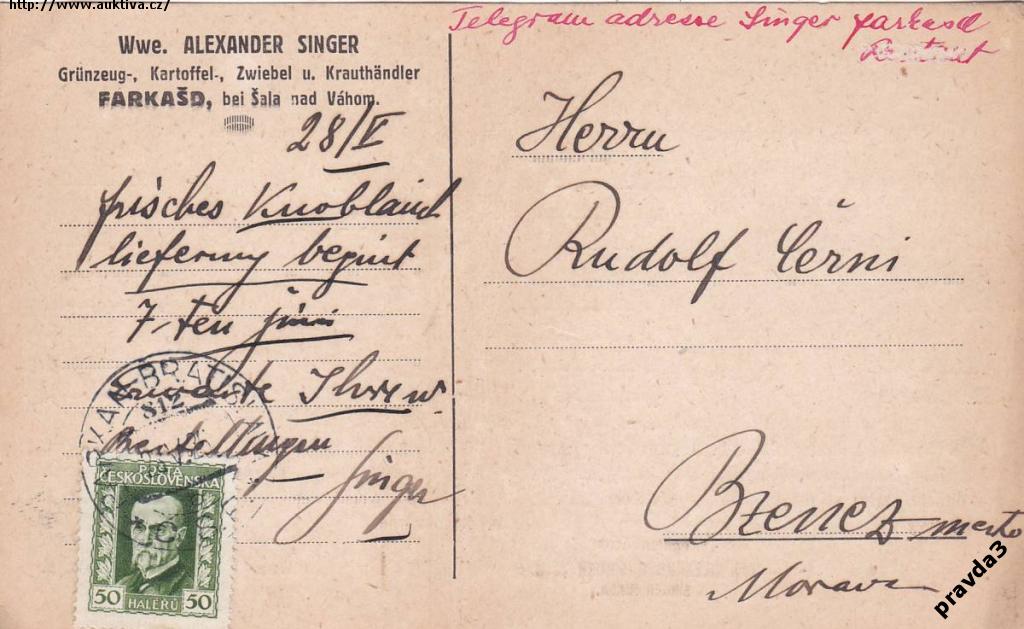 http://www.auktiva.cz/
Telegram adresse Singer farkasd
Wwe. ALEXANDER SINGER
Grünzeug-, Kartoffel-, Zwiebel u. Krauthändler
FARKAŠD, bei Šala nad Váhom.
28/V
frisches Knoblauch
lieferung begint
7-ten juni
Ihre w.
Bestellungen
Singer
Herrn
Rudolf Černi
Bzenez mesto
Morava
BRATIS
812
POŠTA
ČESKOSLOVENSKÁ
50 HALÉŘŮ 50
pravda3